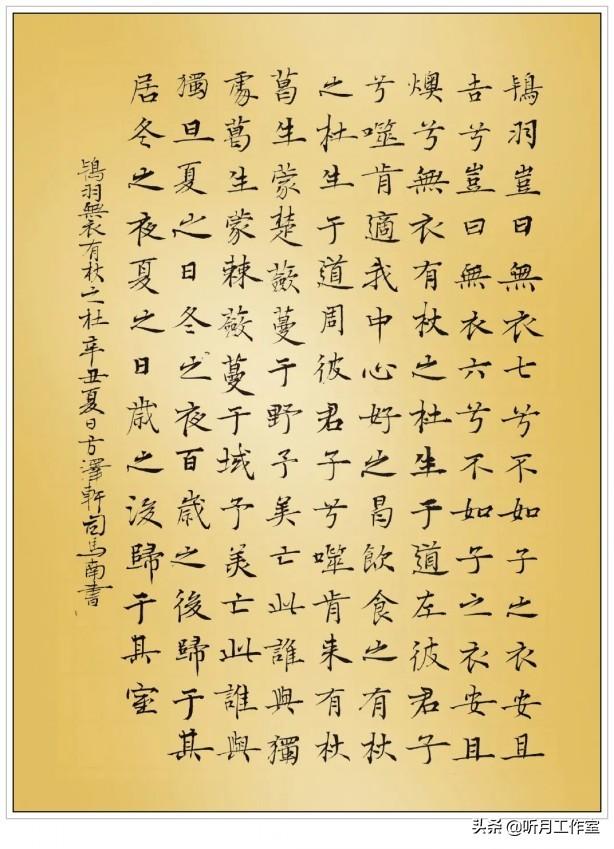 鴇羽豈曰無衣七兮不如子之衣安且
吉兮豈曰無衣六兮不如子之衣安且
燠兮無衣有杕之杜生于道左彼君子
兮噬肯適我中心好之曷飲食之有杕
之杜生于道周彼君子兮噬肯来有杕
葛生蒙楚蔹蔓于野予美亡此誰與獨
處葛生蒙棘蔹蔓于域予美亡此誰與
獨旦夏之日冬之夜百歲之後歸于其
居冬之夜夏之日歲之後歸于其室
鴇羽無衣有杕之杜辛丑夏日方澤軒司馬南書
头条 @听月工作室